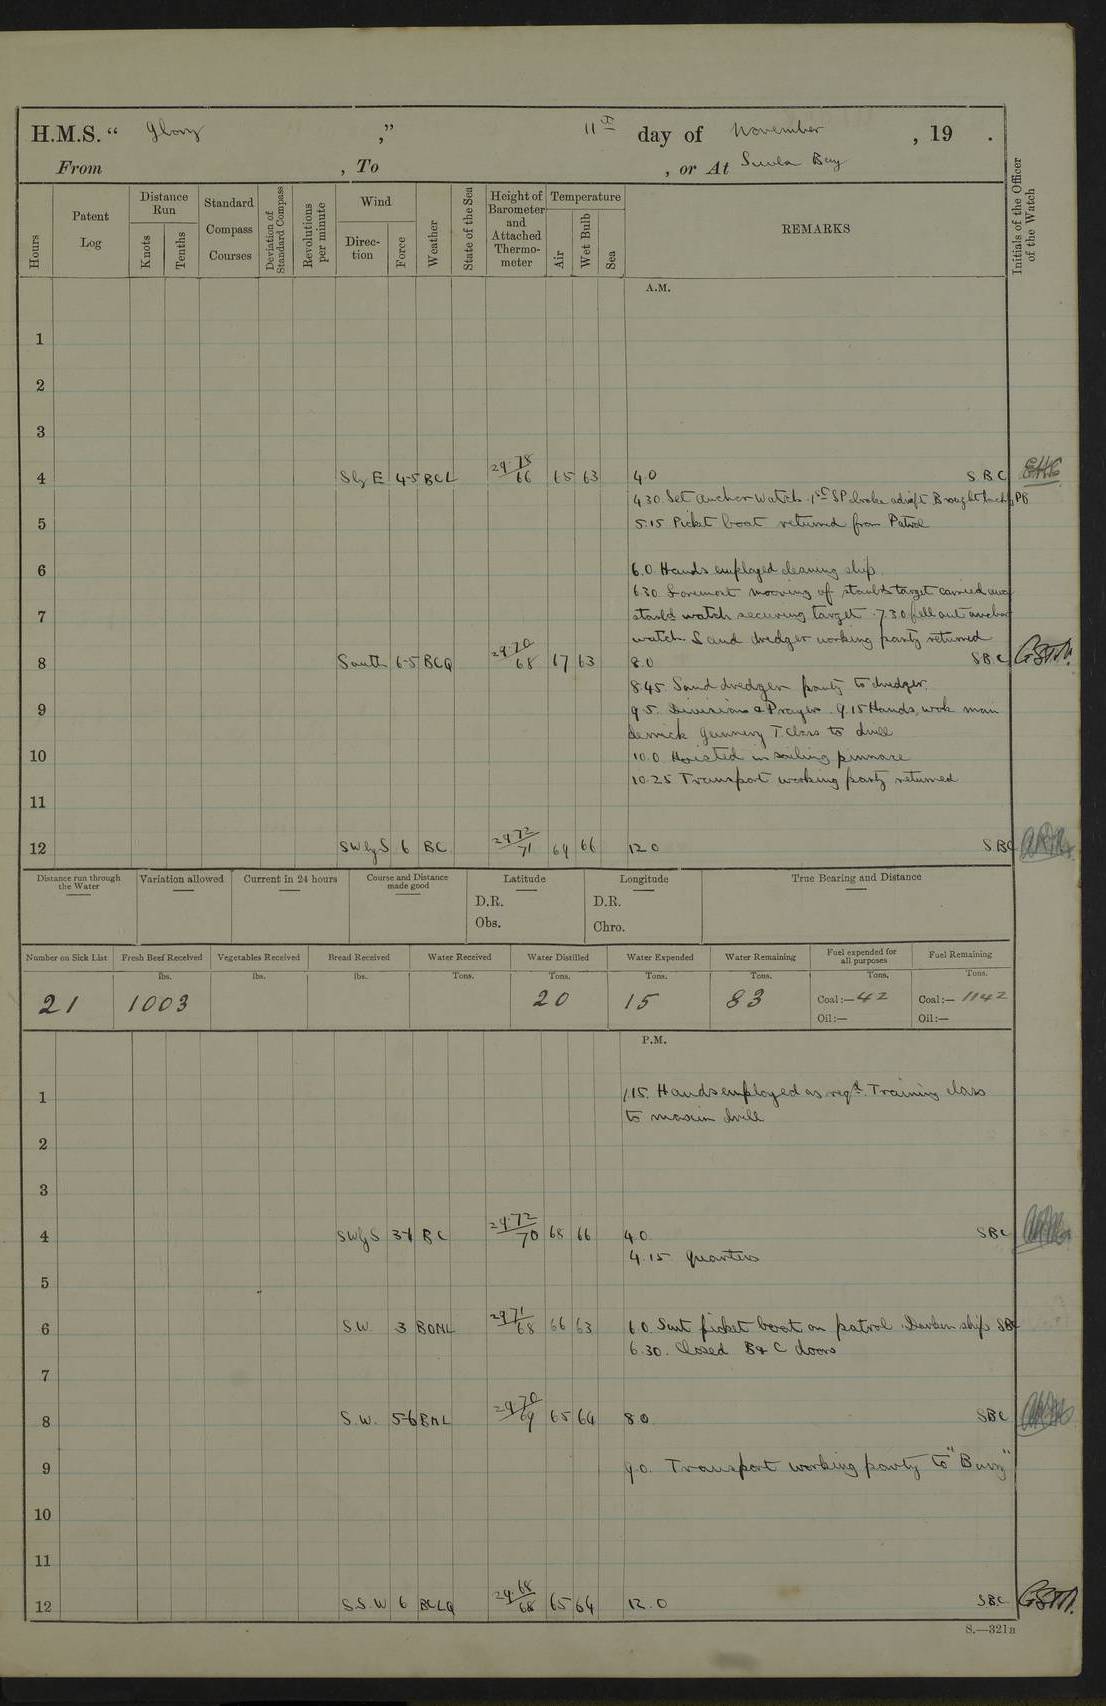 H.M.S. “ Glory ,” 11th day of November , 19 .
From , To , or At Suvla Bay
Hours
Patent Log
Distance Run
Knots
Tenths
Standard Compass Courses
Deviation of Standard Compass
Revolutions per minute
Wind
Direction
Force
Weather
State of the Sea
Height of Barometer and Attached Thermometer
Temperature
Air
Wet Bulb
Sea
REMARKS
Initials of the Officer of the Watch
A.M.
1
2
3
4 SbyE 4-5 BCL 29.78/66 65 63 4.0 SBC
4.30 Set anchor watch. 1st SP broke adrift Brought back by PB
5 5.15 Picket boat returned from Patrol
6 6.0 Hands employed cleaning ship
6.30 Foremost mooring of starbd target carried away
7 starbd watch securing target. 7.30 fell out anchor
watch Sand dredger working party returned
8 South 6-5 BCQ 29.70/68 67 63 8.0 SBC
8.45 Sand dredger party to dredger.
9 9.5. Divisions & Prayers. 9.15 Hands, work main
derrick gunnery T Class to drill
10 10.0 Hoisted in sailing pinnace
10.25 Transport working party returned
11
12 SWbyS 6 BC 29.72/71 69 66 12.0 SBC
Distance run through the Water
Variation allowed
Current in 24 hours
Course and Distance made good
Latitude
D.R.
Obs.
Longitude
D.R.
Chro.
True Bearing and Distance
Number on Sick List Fresh Beef Received Vegetables Received Bread Received Water Received Water Distilled Water Expended Water Remaining Fuel expended for all purposes Fuel Remaining
lbs. lbs. lbs. Tons. Tons. Tons. Tons. Tons. Tons.
21 1003 20 15 83 Coal:— 42 Coal:— 1142
Oil:— Oil:—
P.M.
1 1.15. Hands employed as reqd. Training class
to maxim drill
2
3
4 SWbyS 3-4 BC 29.72/70 68 66 4.0 SBC
4.15 Quarters
5
6 S.W. 3 BOML 29.71/68 66 63 6.0 Sent picket boat on patrol. Darken ship SBC
6.30. Closed B & C doors
7
8 S.W. 5-6 BML 29.70/69 65 64 8.0 SBC
9 9.0. Transport working party to "Barry"
10
11
12 S.S.W 6 BCLQ 29.68/68 65 64 12.0 SBC
S.—321B